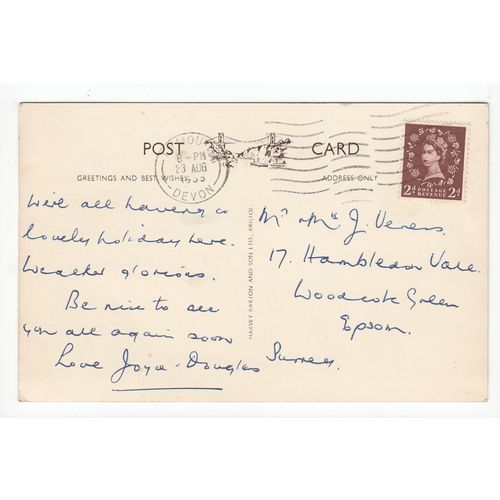 POST CARD
GREETINGS AND BEST WISHES
ADDRESS ONLY
8 - PM
23 AUG
DEVON
2 D. POSTAGE REVENUE 2 D.
We're all having a
lovely holiday here.
Weather glorious.
Be nice to see
you all again soon
Love Joyce - Douglas
HARVEY BARTON AND SON LTD., BRISTOL
Mr & Mrs J.
17, Hambledon Vale.
Woodcote Green
Epsom.
Surrey